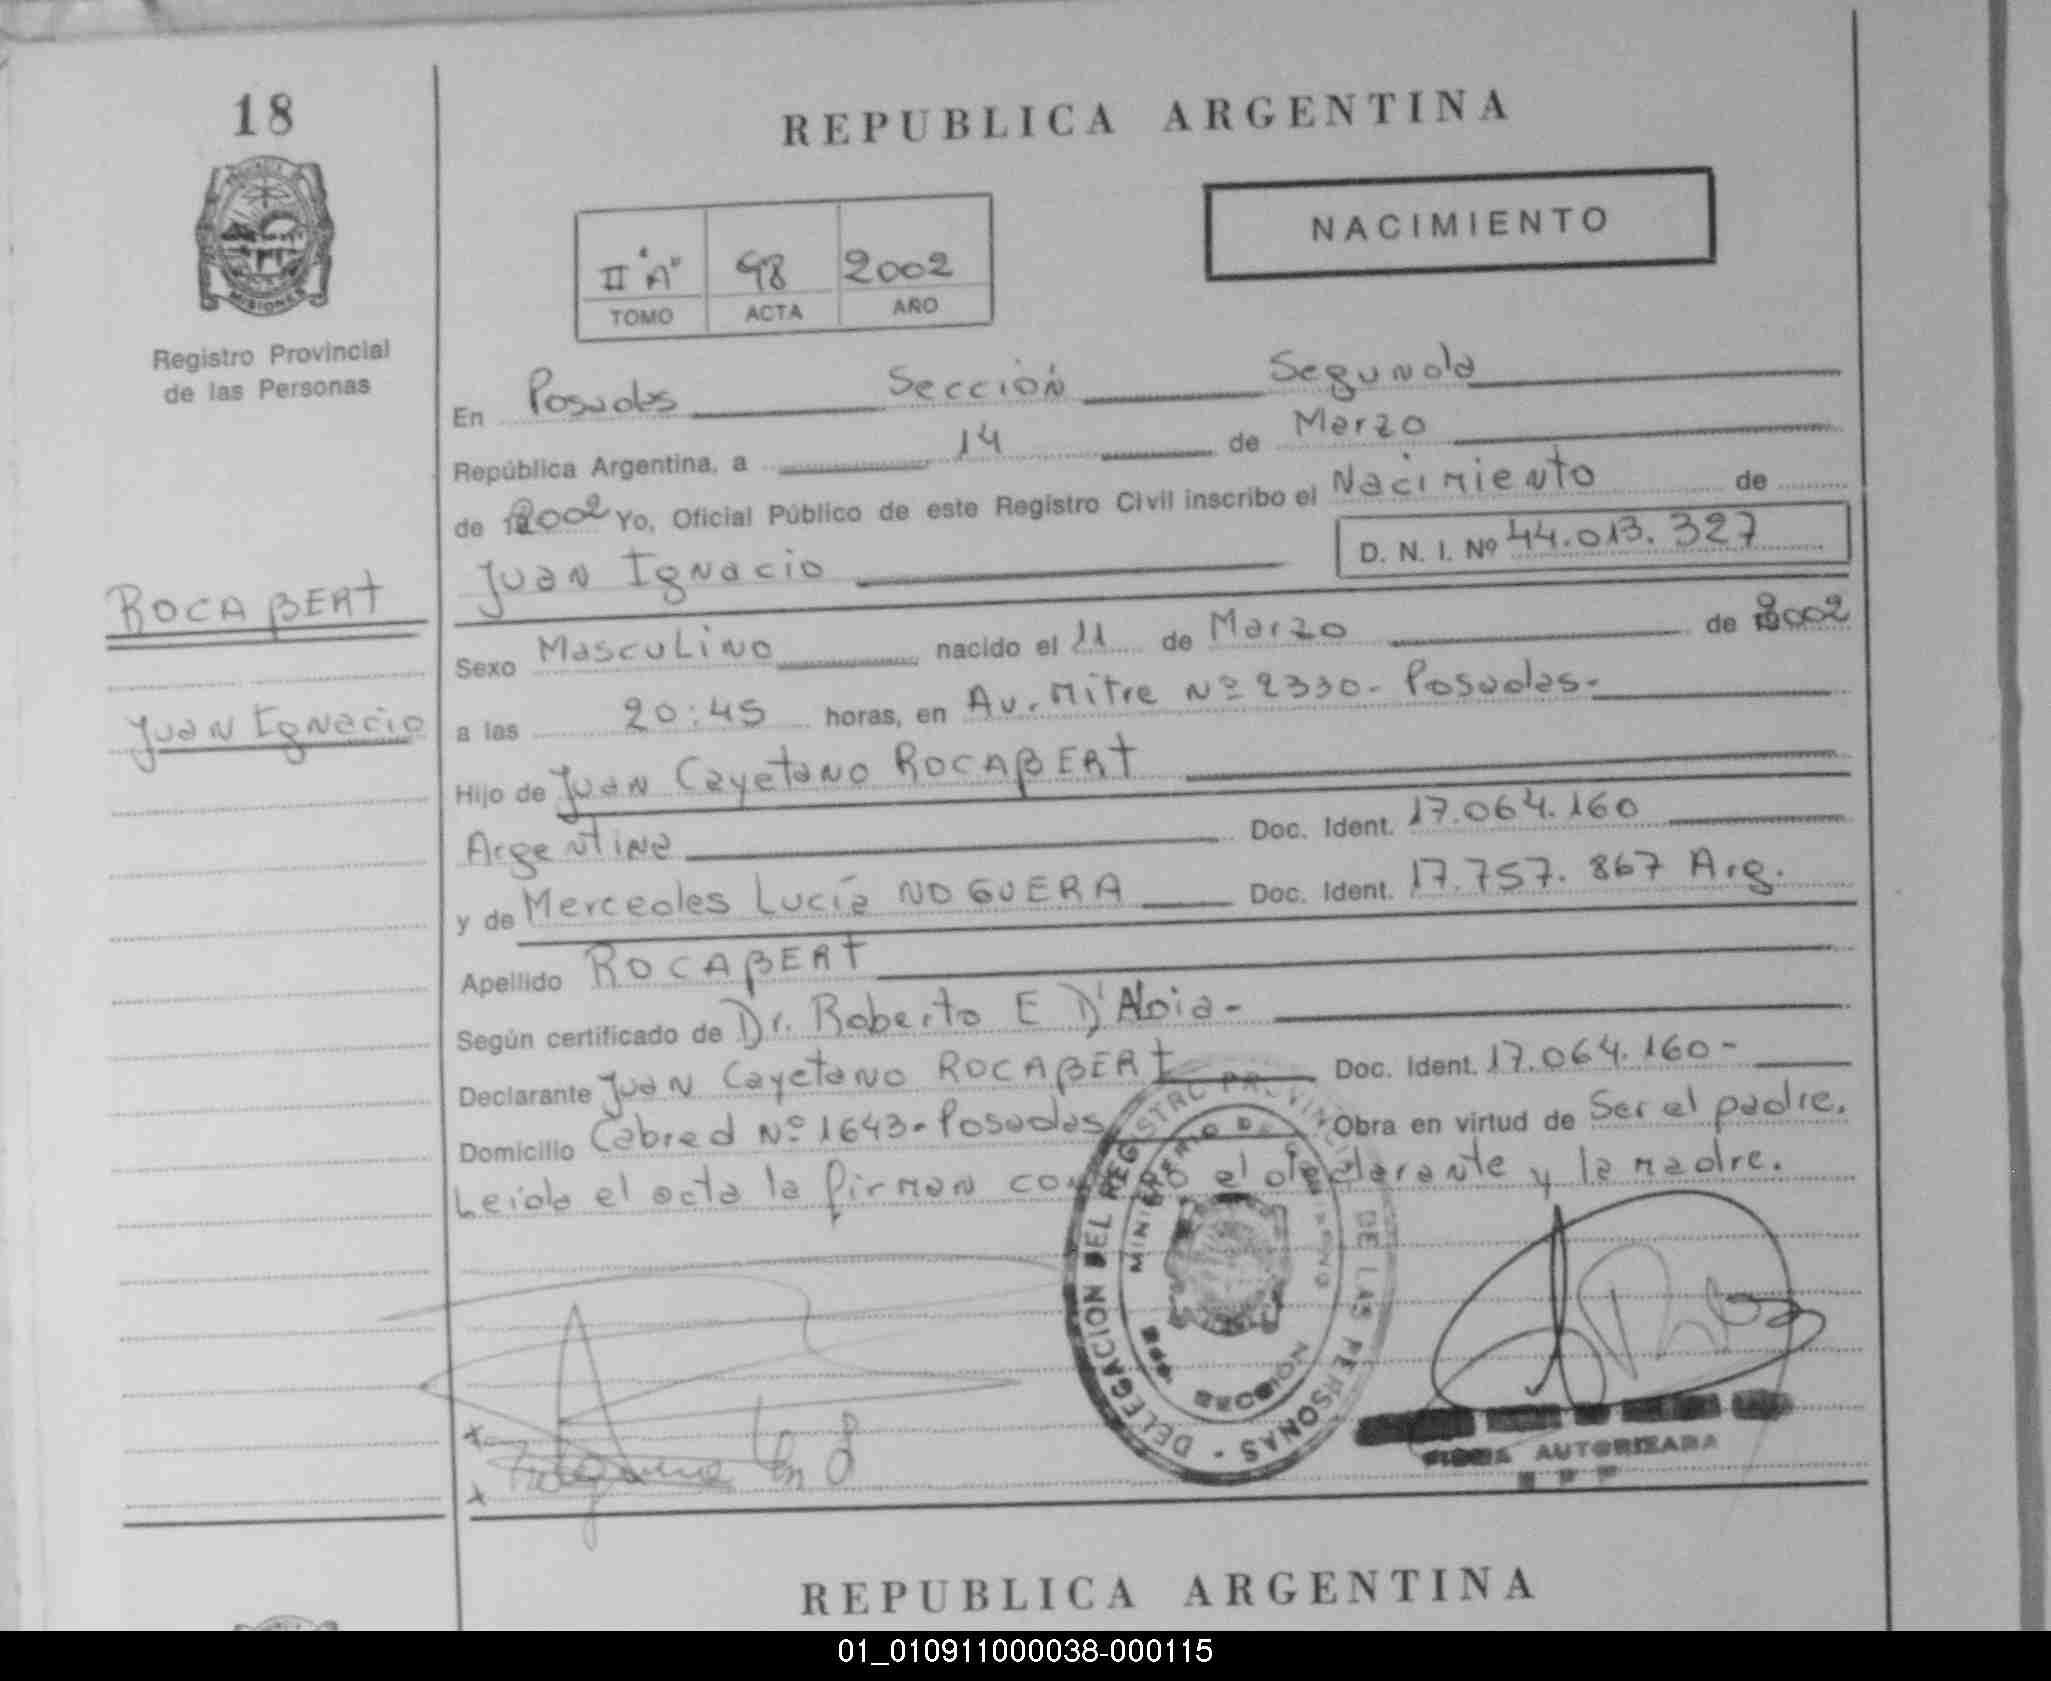 18
REPUBLICA ARGENTINA
NACIMIENTO
II "A" 98 2002
TOMO ACTA AÑO
MISIONES
Registro Provincial
de las Personas
En Posadas Sección Segunda
República Argentina, a 14 de Marzo
de 2002 Yo, Oficial Público de este Registro Civil inscribo el Nacimiento de
Juan Ignacio D. N. I. Nº 44.013.327
ROCABERT
Sexo Masculino nacido el 11 de Marzo de 2002
Juan Ignacio
a las 20:45 horas, en Av. Mitre Nº 2330- Posadas-
Hijo de Juan Cayetano ROCABERT
Argentina Doc. Ident. 17.064.160
y de Mercedes Lucía NOGUERA Doc. Ident. 17.757.867 Arg.
Apellido ROCABERT
Según certificado de Dr. Roberto E D'Aloia-
Declarante Juan Cayetano ROCABERT Doc. Ident. 17.064.160-
Domicilio Cabred Nº 1643-Posadas Obra en virtud de Ser el padre.
Leída el acta la firman el declarante y la madre.
DELEGACION DEL REGISTRO PROVINCIAL DE LAS PERSONAS
FIRMA AUTORIZADA
REPUBLICA ARGENTINA
01_010911000038-000115